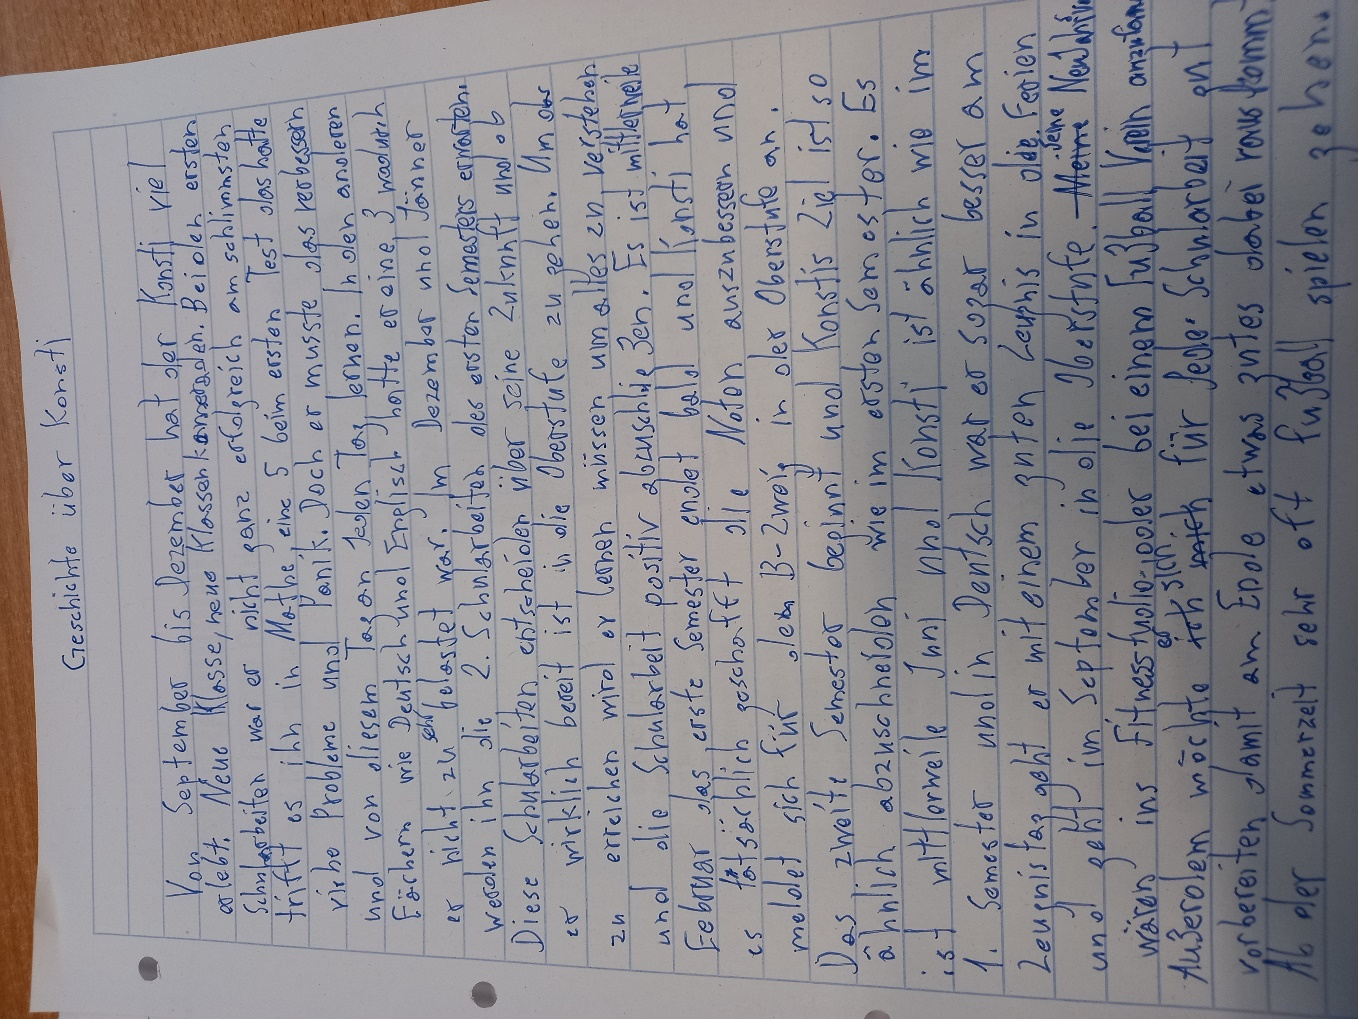 Geschichte über Konsti
Von September bis Dezember hat der Konsti viel
erlebt. Neue Klasse, neue Klassenkameraden. Bei den ersten
Schularbeiten war er nicht ganz erfolgreich am schlimmsten
trifft es ihn in Mathe eine 5 beim ersten Test das hatte
viehe Probleme und Panik. Doch er musste das verbessern
und von diesem Tag an jeden Tag lernen. In den anderen
Fächern wie Deutsch und Englisch hatte er eine 3 wodurch
er nicht zu sehr belastet war. Im Dezember und Jänner
werden ihn die 2. Schularbeiten des ersten Semesters erwarten.
Diese Schularbeiten entscheiden über seine Zukunft und ob
er wirklich bereit ist in die Oberstufe zu gehen. Um das
zu erreichen wird er lernen müssen um alles zu verstehen
und die Schularbeit positiv abzuschließen. Es ist mittlerweile
Februar das erste Semester endet bald und Konsti hat
es tatsächlich geschafft die Noten auszubessern und
meldet sich für den B-Zweig in der Oberstufe an.
Das zweite Semester beginnt und Konstis Ziel ist so
ähnlich abzuschneiden wie im ersten Semester. Es
ist mittlerweile Juni und Konsti ist ähnlich wie im
1. Semester und in Deutsch war er sogar besser am
Zeugnistag geht er mit einem guten Zeugnis in die Ferien
und geht im September in die Oberstufe. Meine Seine Neujahrs
wären ins Fitnesstudio oder bei einem Fußball Verein anzufangen
Außerdem möchte er sich für jede Schularbeit gut
vorbereiten damit am Ende etwas gutes dabei rauskommt
Ab der Sommerzeit sehr oft Fußball spielen gehen.